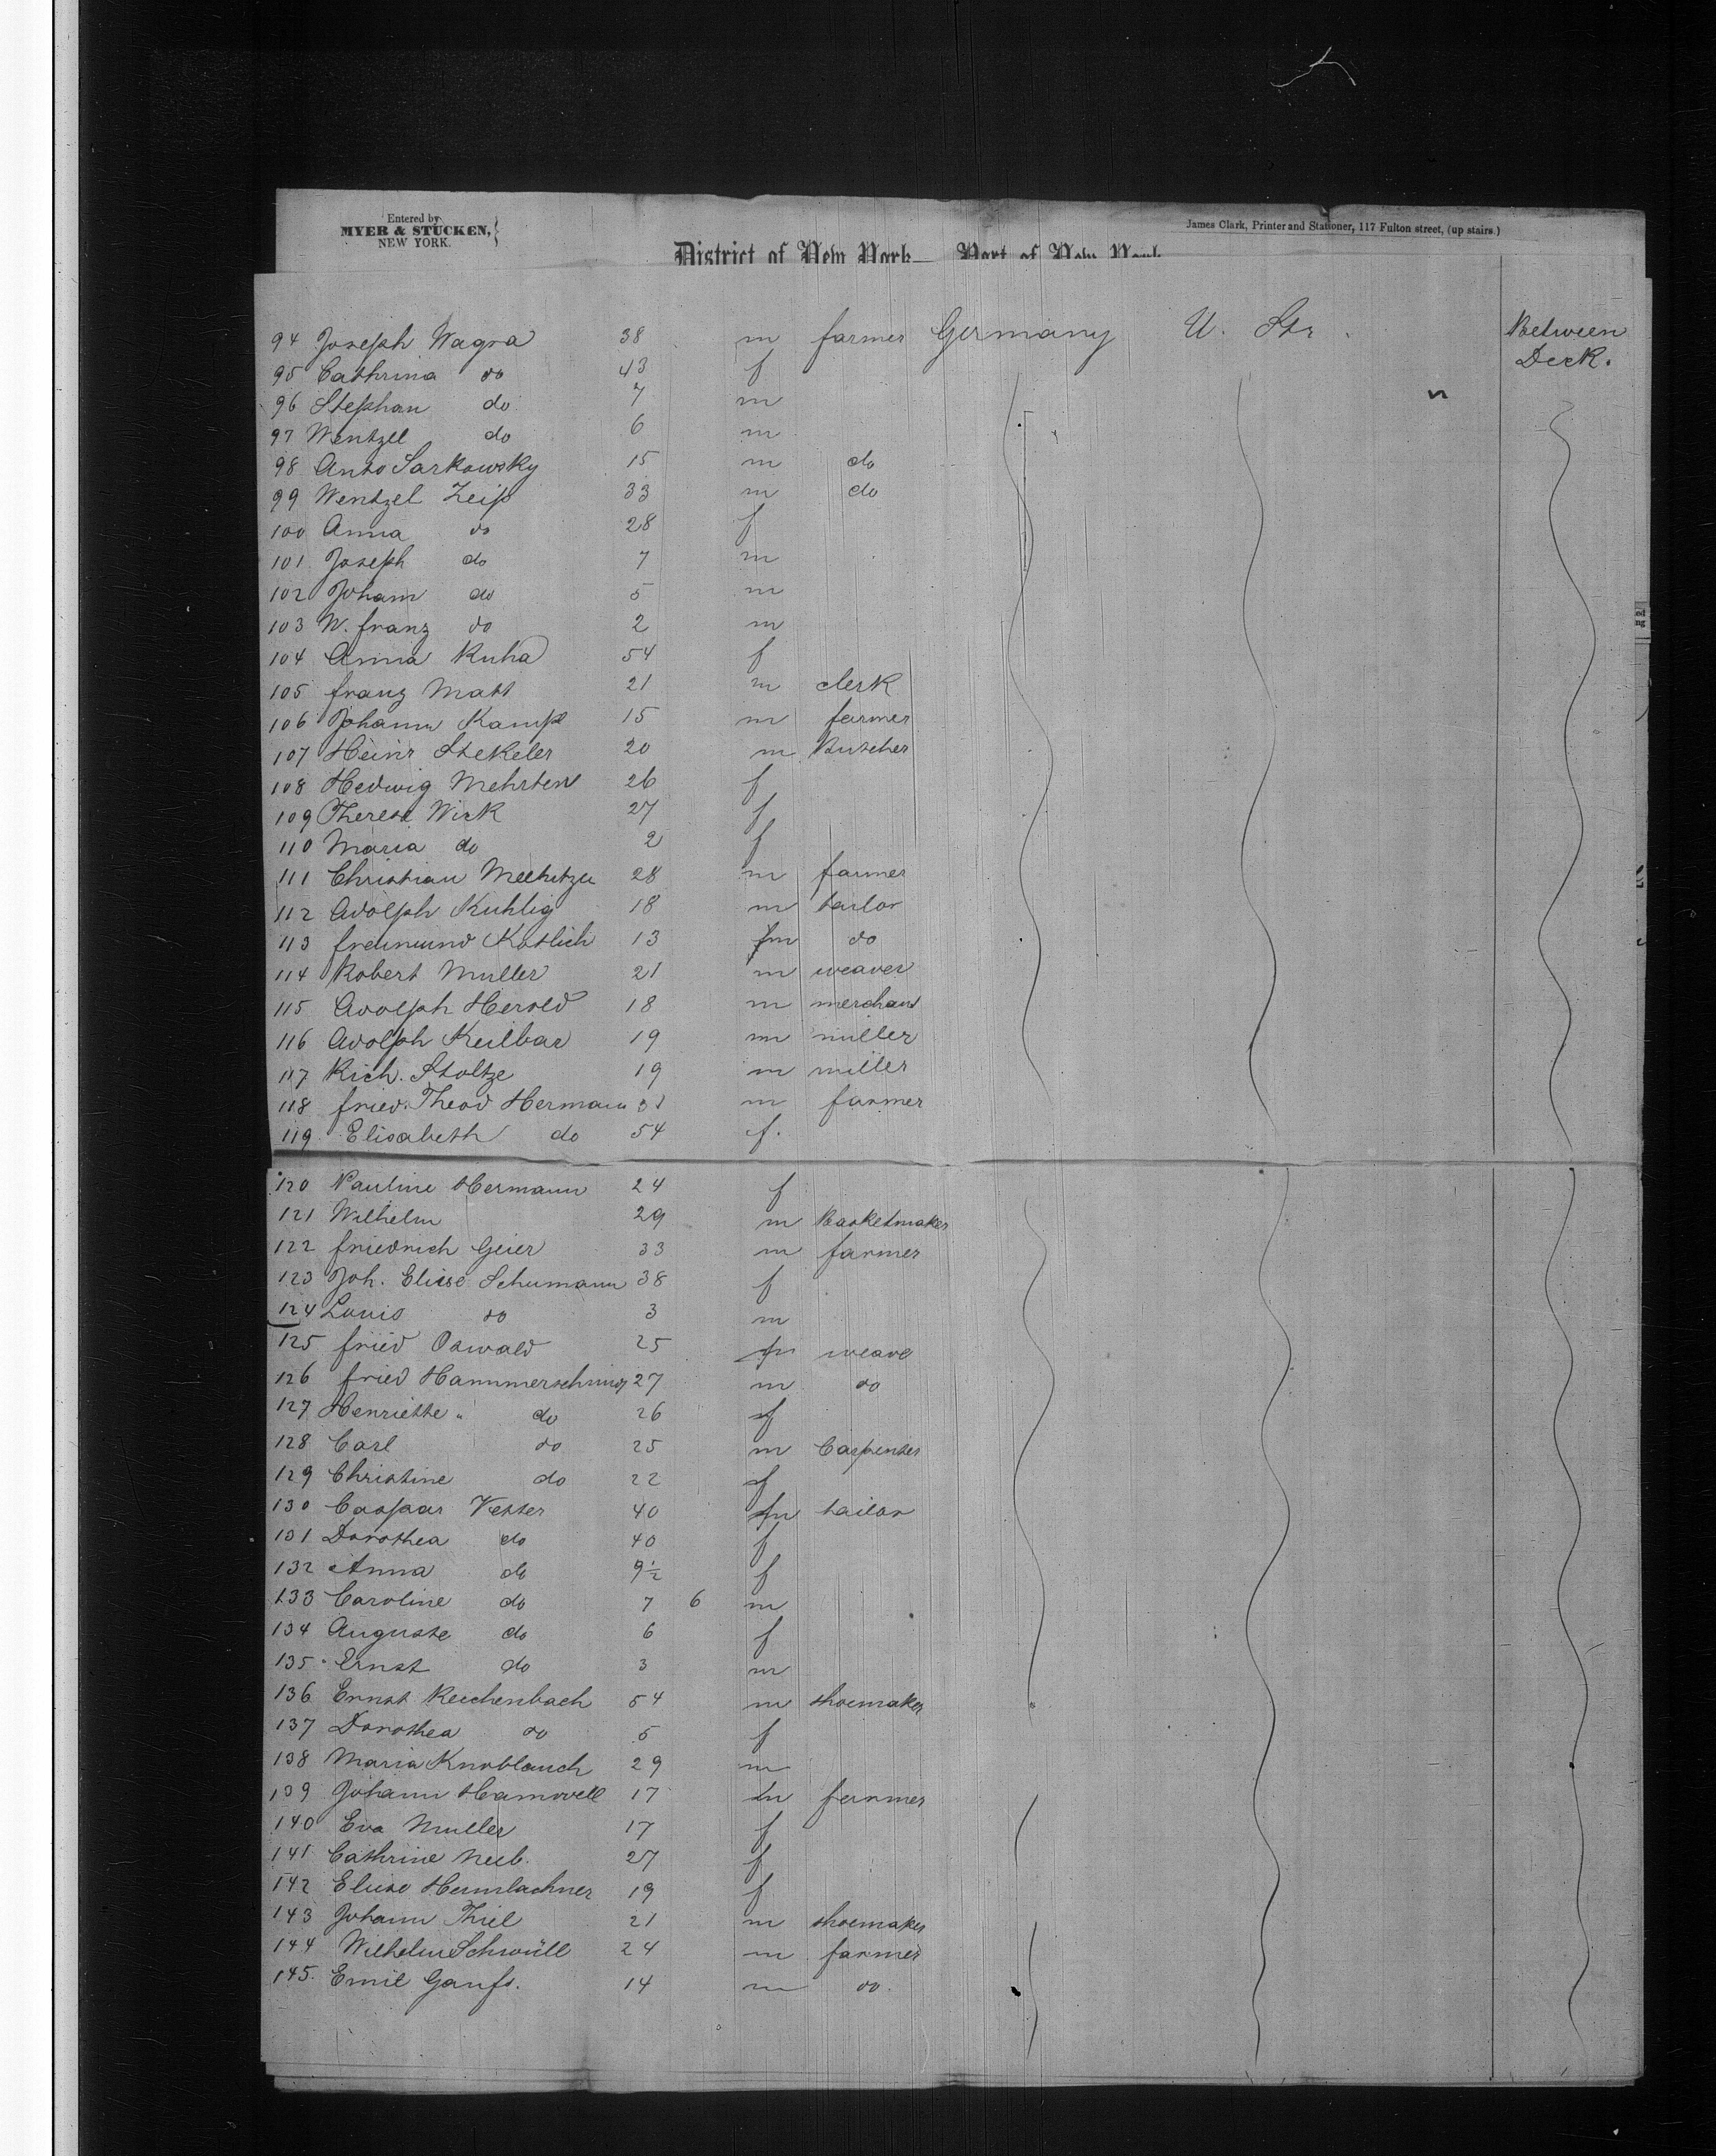 Entered by
MYER & STUCKEN,
NEW YORK.
James Clark, Printer and Stationer, 117 Fulton street, (up stairs.)
District of New York— Port of New York
94 Joseph Wagra 38 m farmer Germany U. Sts. Between
Deck.
95 Cathrina do 43 f
96 Stephan do 7 m
97 Wentzel do 6 m
98 Anto Sarkowsky 15 m do
99 Wentzel Zeiß 33 m do
100 Anna do 28 f
101 Joseph do 7 m
102 Joham do 5 m
103 W. franz do 2 m
104 Anna Kuha 54 f
105 franz Matt 21 m clerk
106 Johann Kampf 15 m farmer
107 Heinr Stekeler 20 m Butcher
108 Hedwig Mehrten 26 f
109 Therese Wick 27 f
110 Maria do 2 f
111 Christian 28 m farmer
112 Adolph Kuhlig 18 m tailor
113 Kotlich 13 m do
114 Robert Muller 21 m weaver
115 Adolph Herold 18 m merchant
116 Adolph Keilbar 19 m miller
117 Rich. Stoltze 19 m miller
118 fried. Theod Hermann 31 m farmer
119 Elisabeth do 54 f.
120 Pauline Hermann 24 f
121 Wilhelm 29 m Basketmaker
122 friedrich Geier 33 m farmer
123 Joh. Eliese Schumann 38 f
124 Louis do 3 m
125 fried Oswald 25 m weave
126 fried Hammerschmidt 27 m do
127 Henriette " do 26 f
128 Carl do 25 m Carpenter
129 Christine do 22 f
130 Caspaar Vetter 40 m tailor
131 Dorothea do 40 f
132 Anna do 9½ f
133 Caroline do 7 6 m
134 Auguste do 6 f
135 Ernst do 3 m
136 Ernst Reichenbach 54 m shoemaker
137 Dorothea do 5 f
138 Maria Knoblauch 29 m
139 Johann 17 m farmer
140 Eva Muller 17 f
141 Cathrine Neeb. 27 f
142 Eliese 19 f
143 Johann Thiel 21 m shoemaker
144 Wilhelm Schwüll 24 m farmer
145. Emil Ganfs. 14 m do.